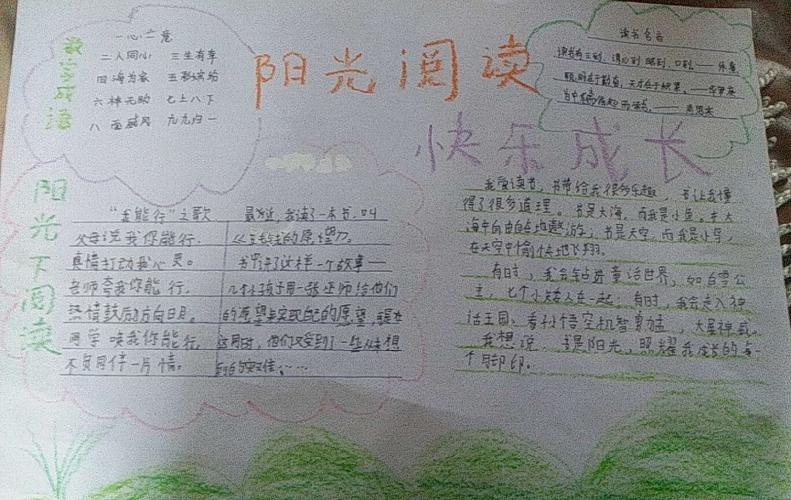 数字成语
一心二意
二人同心 三生有幸
四海为家 五彩缤纷
六神无助 七上八下
八面威风 九九归一
阳光阅读
快乐成长
读书名言
读书有三到,谓心到 眼到,口到。——朱熹
阳光下阅读
“我能行”之歌
父母说我你能行,
真情打动我心灵。
老师夸我你能行,
热情鼓励方向明。
同学唤我你能行,
不负同伴一片情。
最近,我读了一本书,叫
书中讲了这样一个故事——
几个小孩子用一张巫师给他们
的愿望卡实现自己的愿望,
这同时,他们又受到了一些从未想
到的
我爱读书,书带给我很多乐趣,书让我懂
得了很多道理。书是大海,而我是小鱼,在大
海中自由自在地遨游;书是天空,而我是小鸟,
在天空中愉快地飞翔。
有时,我会钻进童话世界,如白雪公
主,七个小矮人在一起;有时,我会走入神
话王国,看孙悟空机智勇猛,大展神威。
我想说,书是阳光,照耀我成长的每一
个脚印。